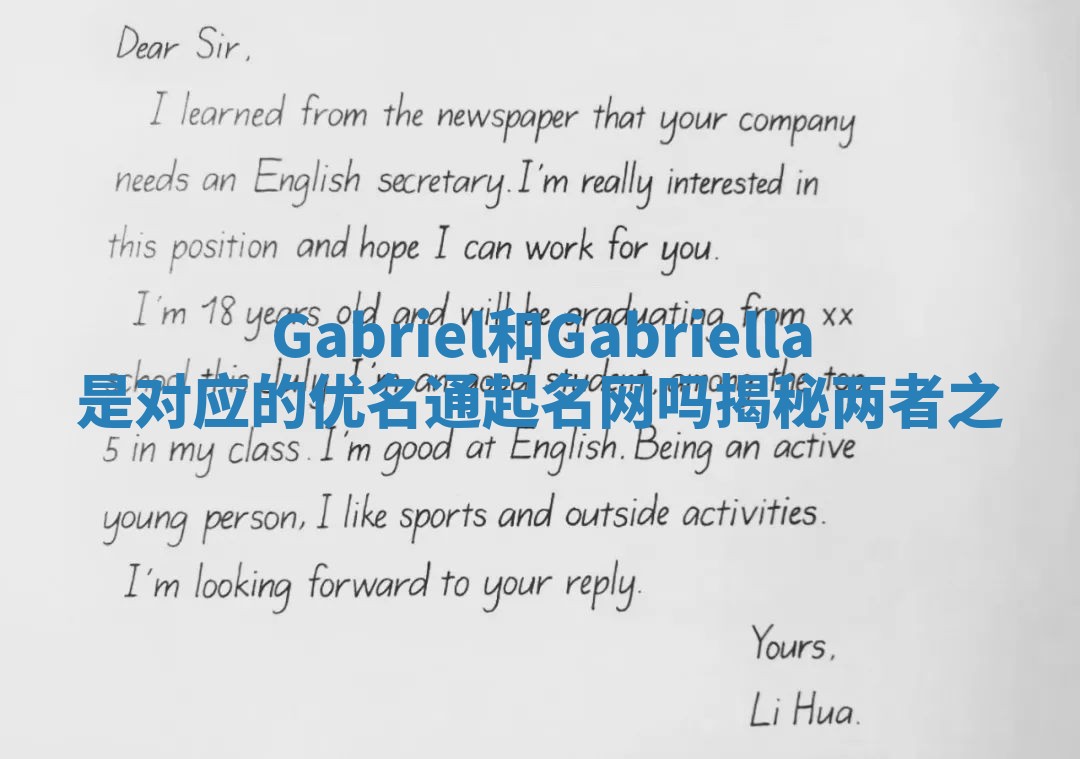 Dear Sir,
I learned from the newspaper that your company
needs an English secretary. I'm really interested in
this position and hope I can work for you.
I'm 18 years old and will be graduating from xx
Gabriel和Gabriella
school this July. I'm an good student, among the top
是对应的优名通起名网吗揭秘两者之
5 in my class. I'm good at English. Being an active
young person, I like sports and outside activities.
I'm looking forward to your reply.
Yours,
Li Hua.